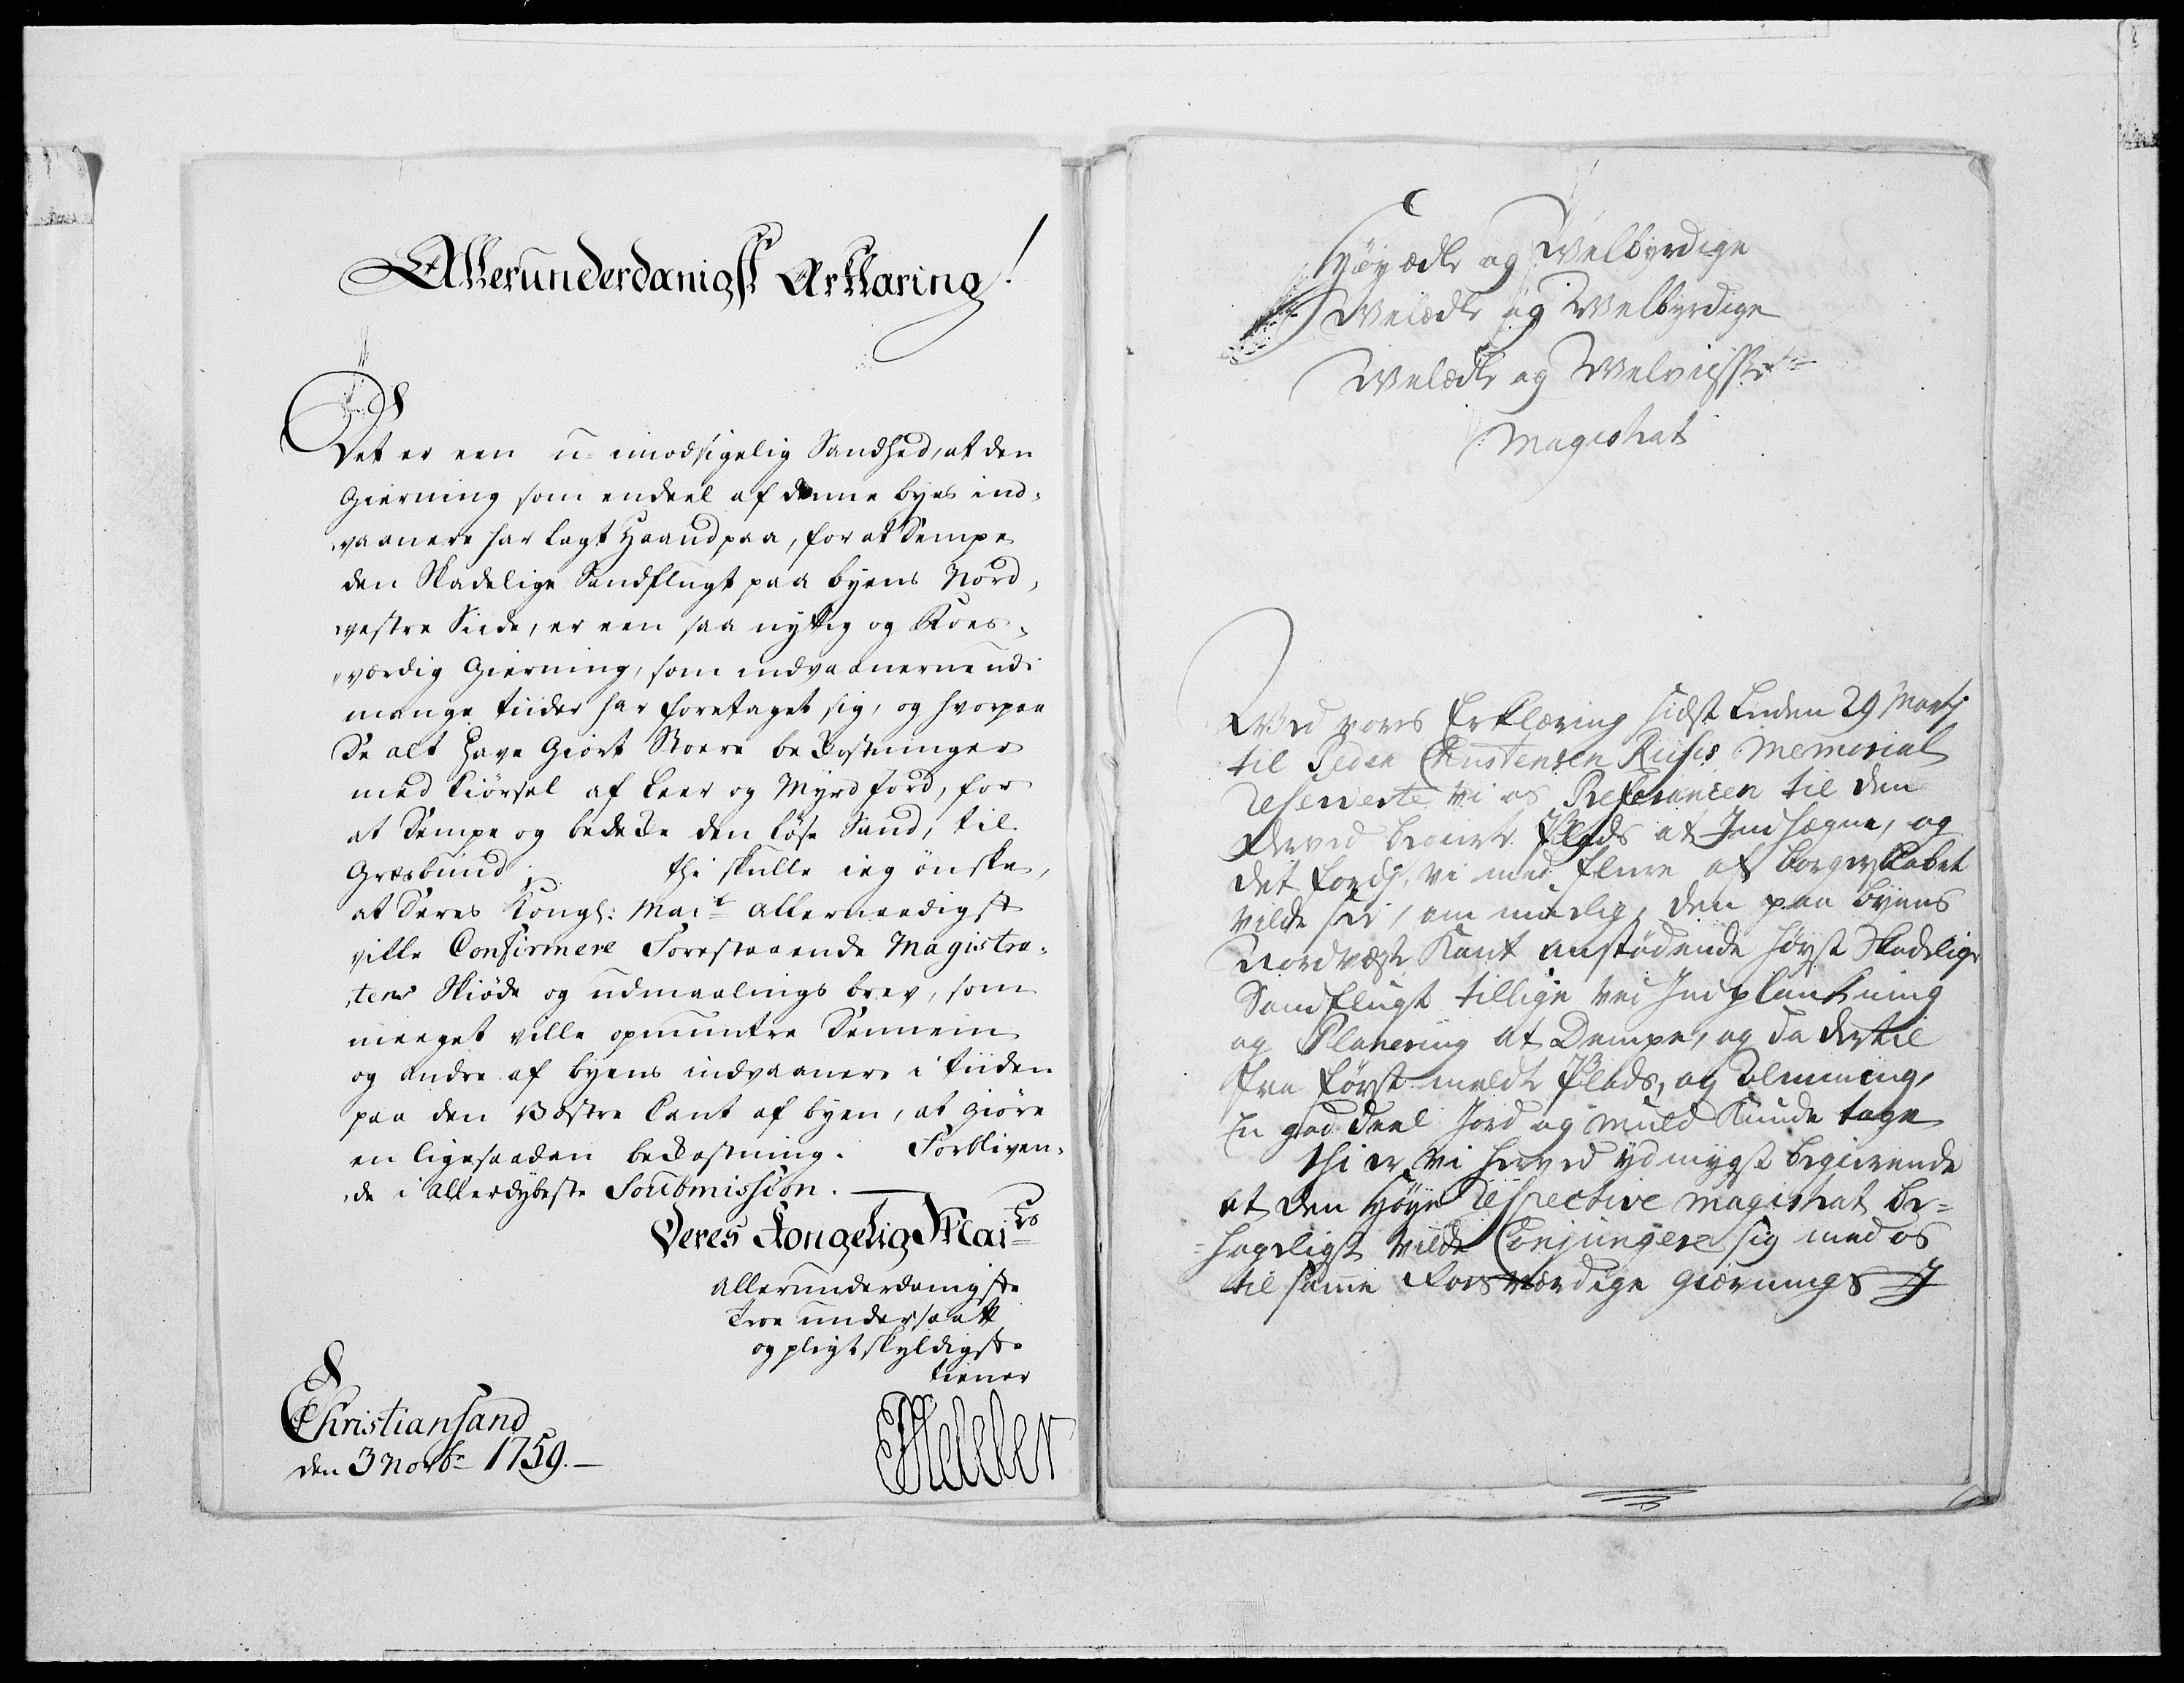 Allerunderdanigst Erklæring!
Det er een u-imodsigelig Sandhed, at den
Gierning som endeel af denne byes ind-
vaanere har lagt Haand paa, for at dempe
den Skadelige Sandflugt paa byens Nord-
vestre Siide, er een saa nyttig og Roes-
værdig Gierning, som indvaanerne udi
mange tiider har foretaget sig, og hvorpaa
De alt have Giort Stoere bekostninger
med Kiørsel af Leer og Myrd Jord, for
at dempe og bedecke den løse Sand, til
Græsbund. thi skulle ieg ønske,
at Deres Kongl: Mait allernaadigst
ville Confirmere Forestaaende Magistra-
tens Skiøde og udmaalings brev, som
meeget ville opmuntre Dennem
og andre af byens indvaanere i tiiden
paa den Væstre Cant af byen, at giøre
en ligesaadan bekostning. Forbliven-
de i allerdybeste Soubmission.
Deres Kongelig Maits
allerunderdanigste
troe undersaatt
og pligtskyldigste
tiener
Christiansand
den 3 Novbr 1759.
Heller
Høyædle og Welbyrdige
Welædle og Welbyrdige
Welædle og Welviisste
Magistrat
Wed vores Erklæring sidst leeden 29 Marti
til Peder Christensen Riises Memorial
reserverte vi os Referancen til den
derved begierte Plads at Indhægne, og
det fordj, vi med fleere af borgerskabet
vilde see, om muelig, den paa byens
Nordvæste Kant anstødende høyst Skadelige
Sandflugt tillige ved Indplankning
og Planering at Dempe, og da dertil
fra først meldte Plads, og Almening,
En god deel Jord og Muld kunde tages
thi er vi herved ydmygst begierende
at den Høye respective Magistrat be-
hageligst vilde Conjungere sig med os
til samme Roesværdige giernings J